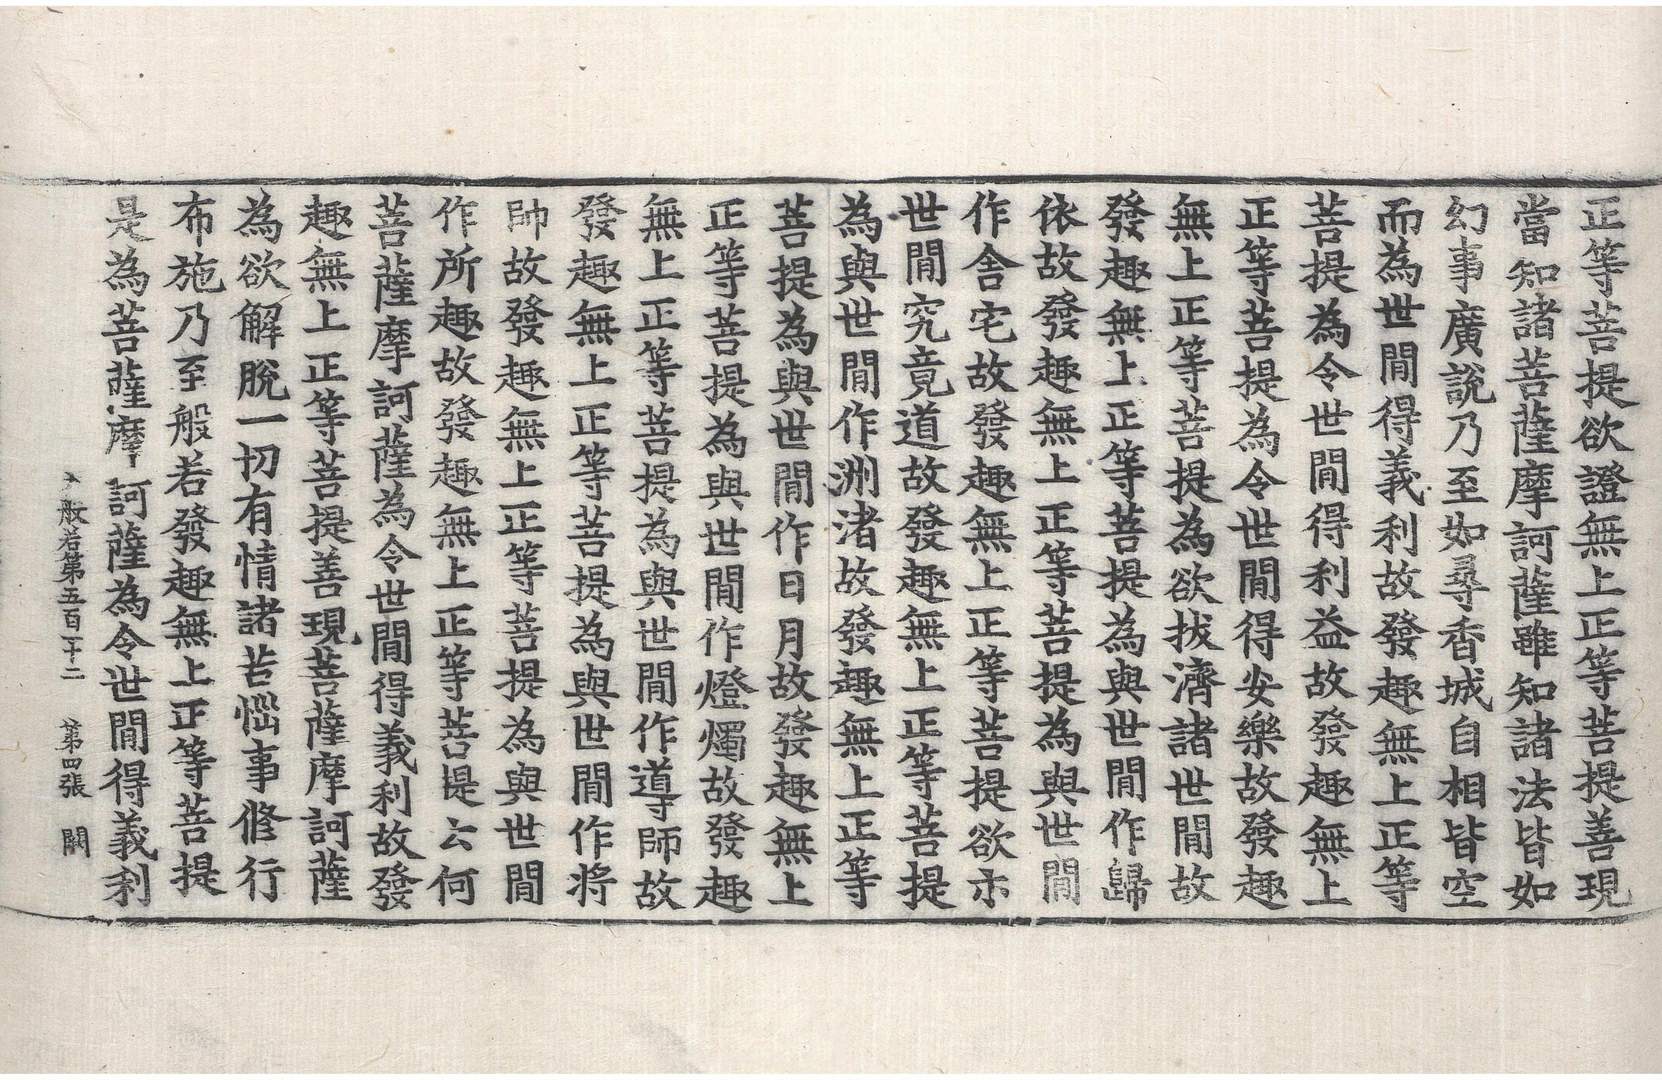 正等菩提欲證無上正等菩提善現
當知諸菩薩摩訶薩雖知諸法皆如
幻事廣說乃至如尋香城自相皆空
而為世間得義利故發趣無上正等
菩提為令世間得利益故發趣無上
正等菩提為令世間得安樂故發趣
無上正等菩提為欲拔濟諸世間故
發趣無上正等菩提為與世間作歸
依故發趣無上正等菩提為與世間
作舍宅故發趣無上正等菩提欲示
世間究竟道故發趣無上正等菩提
為與世間作洲渚故發趣無上正等
菩提為與世間作日月故發趣無上
正等菩提為與世間作燈燭故發趣
無上正等菩提為與世間作導師故
發趣無上正等菩提為與世間作將
帥故發趣無上正等菩提為與世間
作所趣故發趣無上正等菩提云何
菩薩摩訶薩為令世間得義利故發
趣無上正等菩提善現菩薩摩訶薩
為欲解脫一切有情諸苦惱事修行
布施乃至般若發趣無上正等菩提
是為菩薩摩訶薩為令世間得義利
大般若第五百一十二 第四張